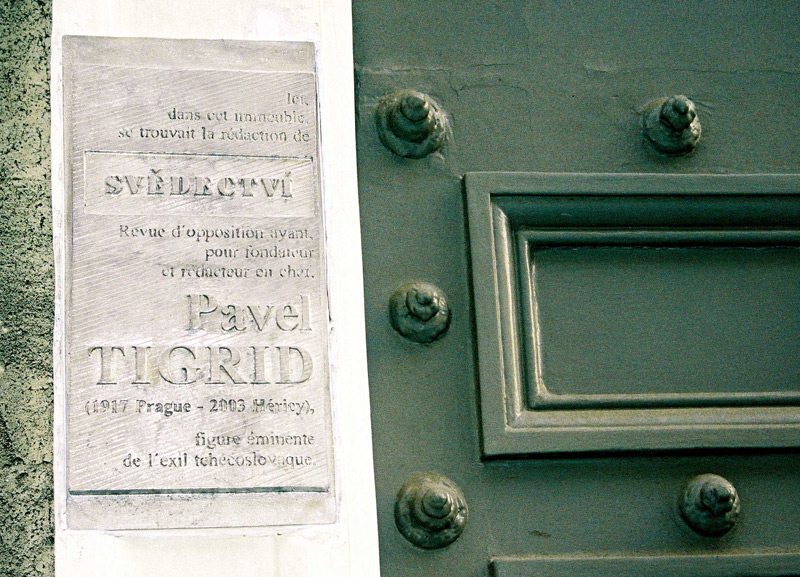 Ici,
dans cet immeuble,
se trouvait la rédaction de
SVĚDECTVÍ
Revue d'opposition ayant,
pour fondateur
et rédacteur en chef,
Pavel
TIGRID
(1917 Prague - 2003 Héricy),
figure éminente
de l'exil tchécoslovaque.